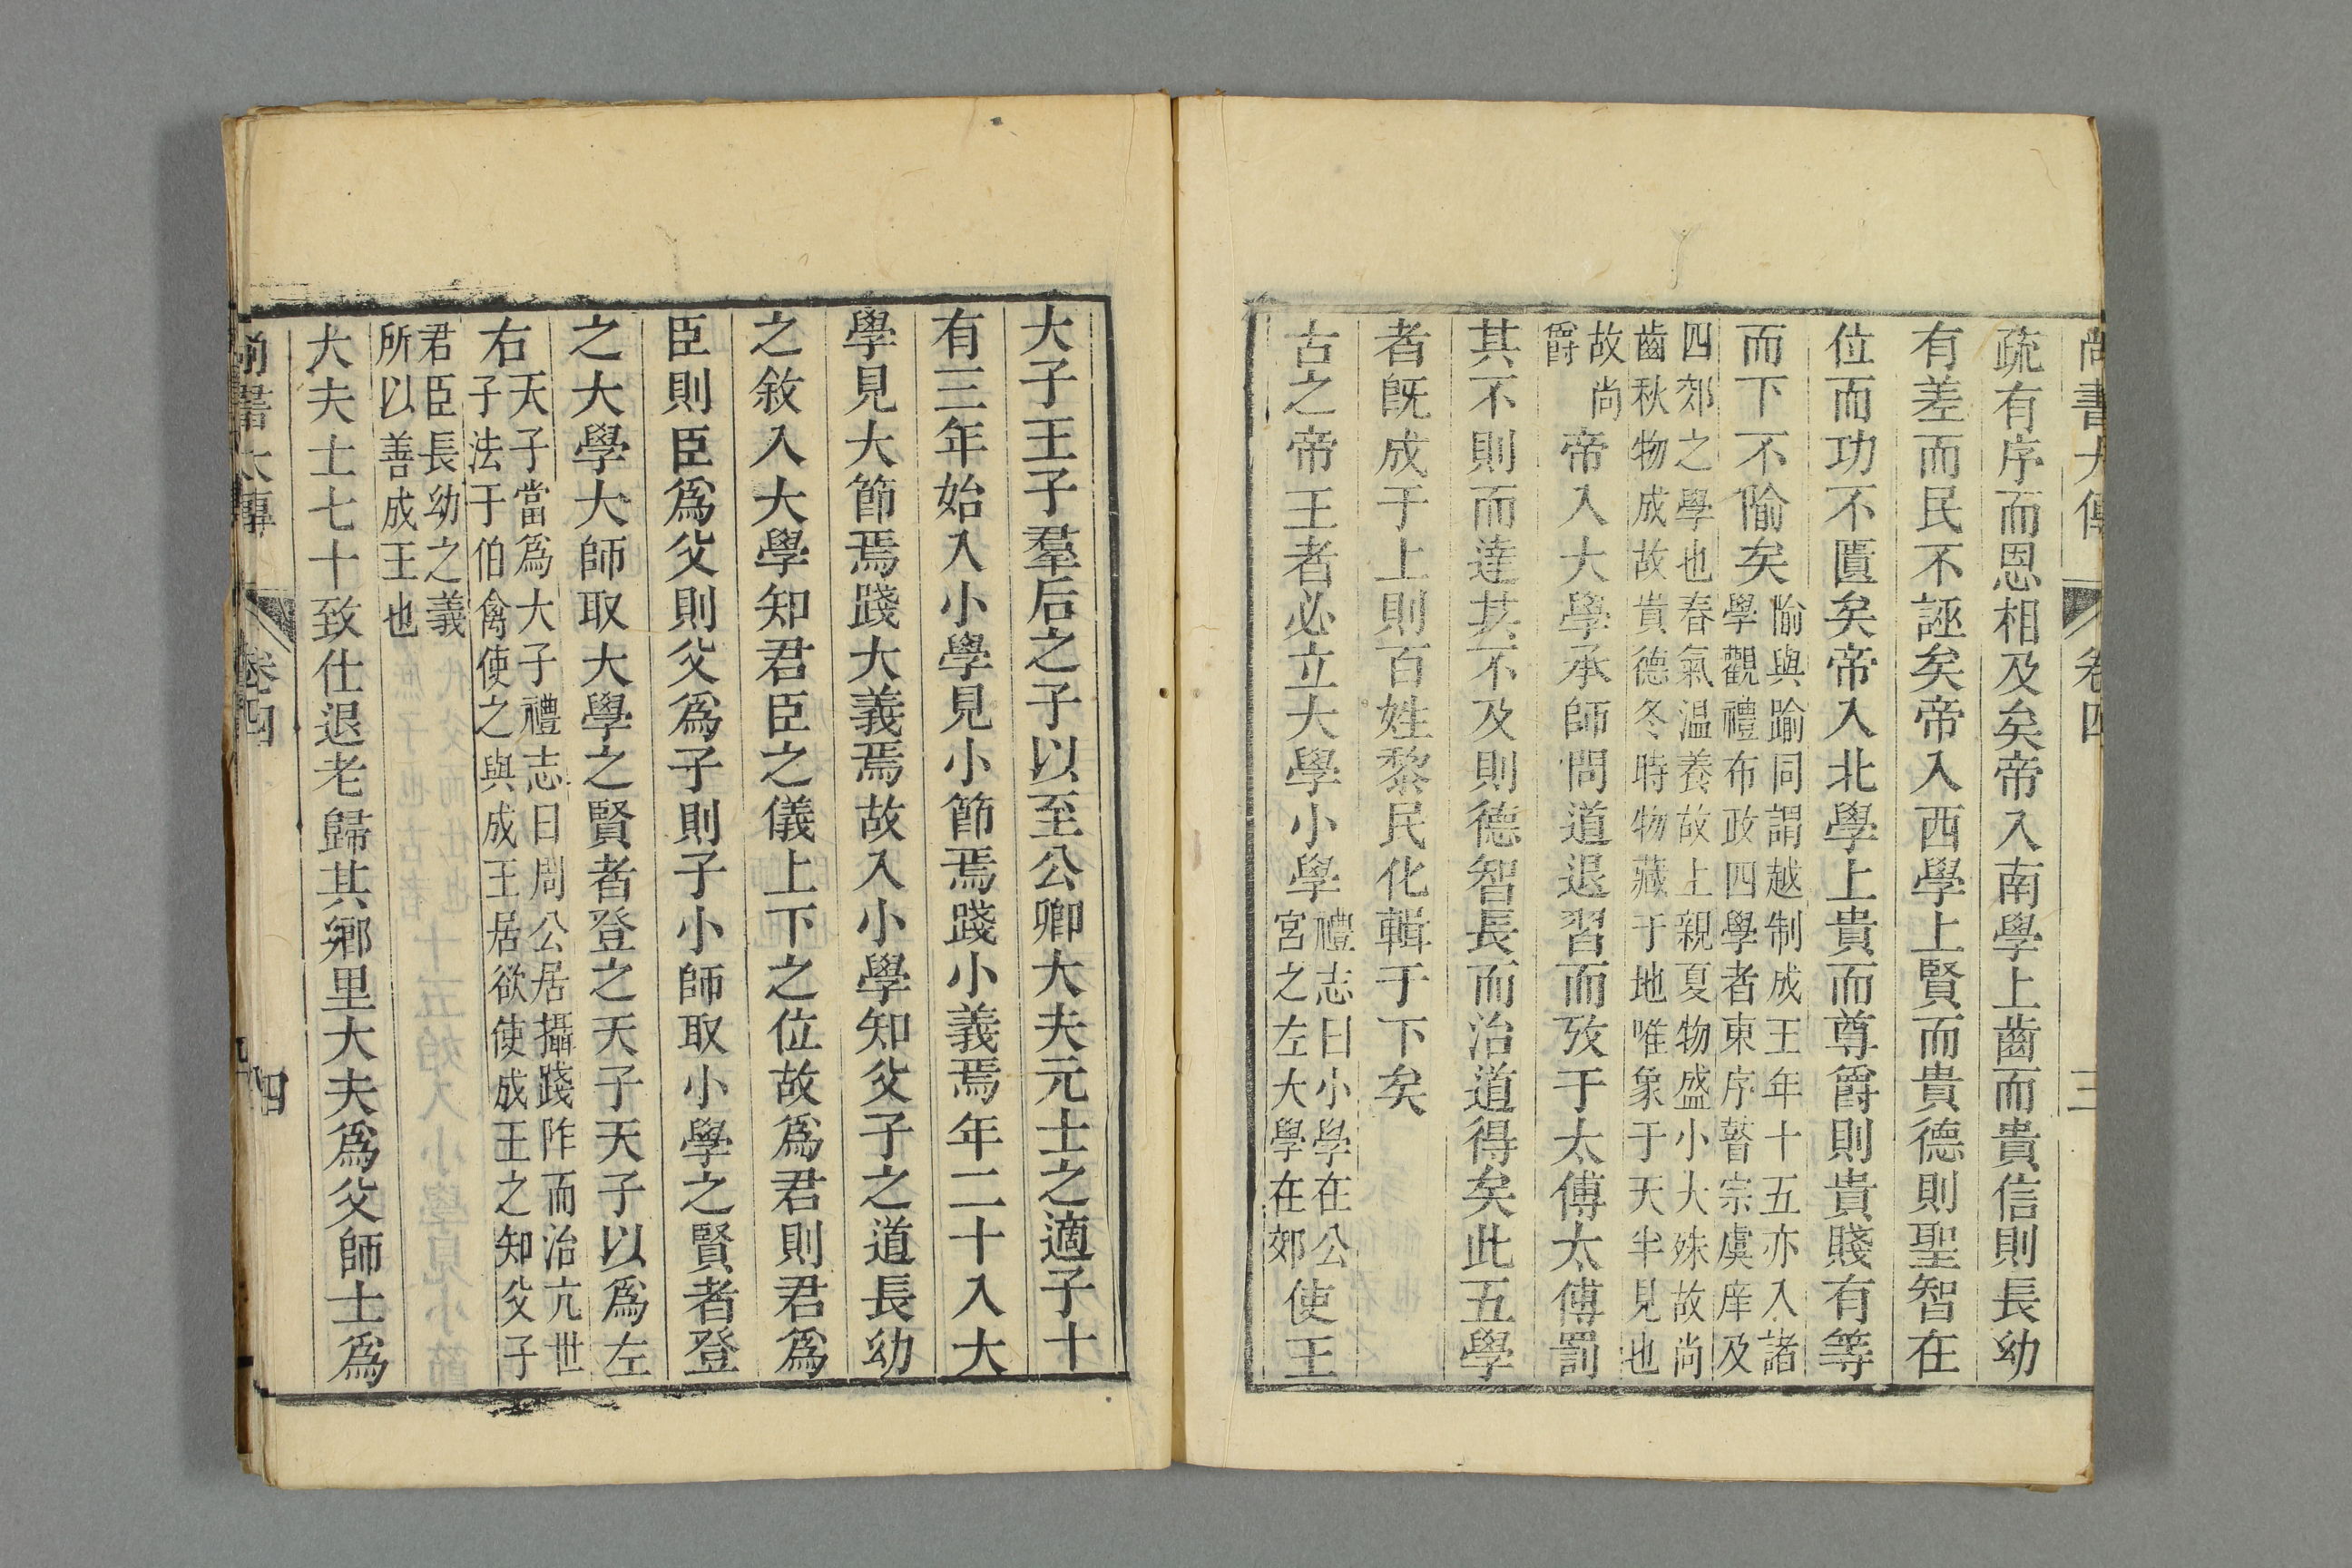 尚書大傳 卷四 三
疏有序而恩相及矣帝入南學上齒而貴信則長幼
有差而民不誣矣帝入西學上賢而貴德則聖智在
位而功不匱矣帝入北學上貴而尊爵則貴賤有等
而下不隃矣
隃與踰同謂越制成王年十五亦入諸
學觀禮布政四學者東序瞽宗虞庠及
四郊之學也春氣温養故上親夏物盛小大殊故尚
齒秋物成故貴德冬時物藏于地唯象于天半見也
故尚
爵
帝入大學承師問道退習而攷于太傅太傅罰
其不則而達其不及則德智長而治道得矣此五學
者旣成于上則百姓黎民化輯于下矣
古之帝王者必立大學小學
禮志曰小學在公
宮之左大學在郊
使王
大子王子羣后之子以至公卿大夫元士之適子十
有三年始入小學見小節焉踐小義焉年二十入大
學見大節焉踐大義焉故入小學知父子之道長幼
之敘入大學知君臣之儀上下之位故爲君則君爲
臣則臣爲父則父爲子則子小師取小學之賢者登
之大學大師取大學之賢者登之天子天子以爲左
右
天子當爲大子禮志曰周公居攝踐阼而治亢世
子法于伯禽使之與成王居欲使成王之知父子
君臣長幼之義
所以善成王也
大夫士七十致仕退老歸其鄉里大夫爲父師士爲
尚書大傳 卷四 四